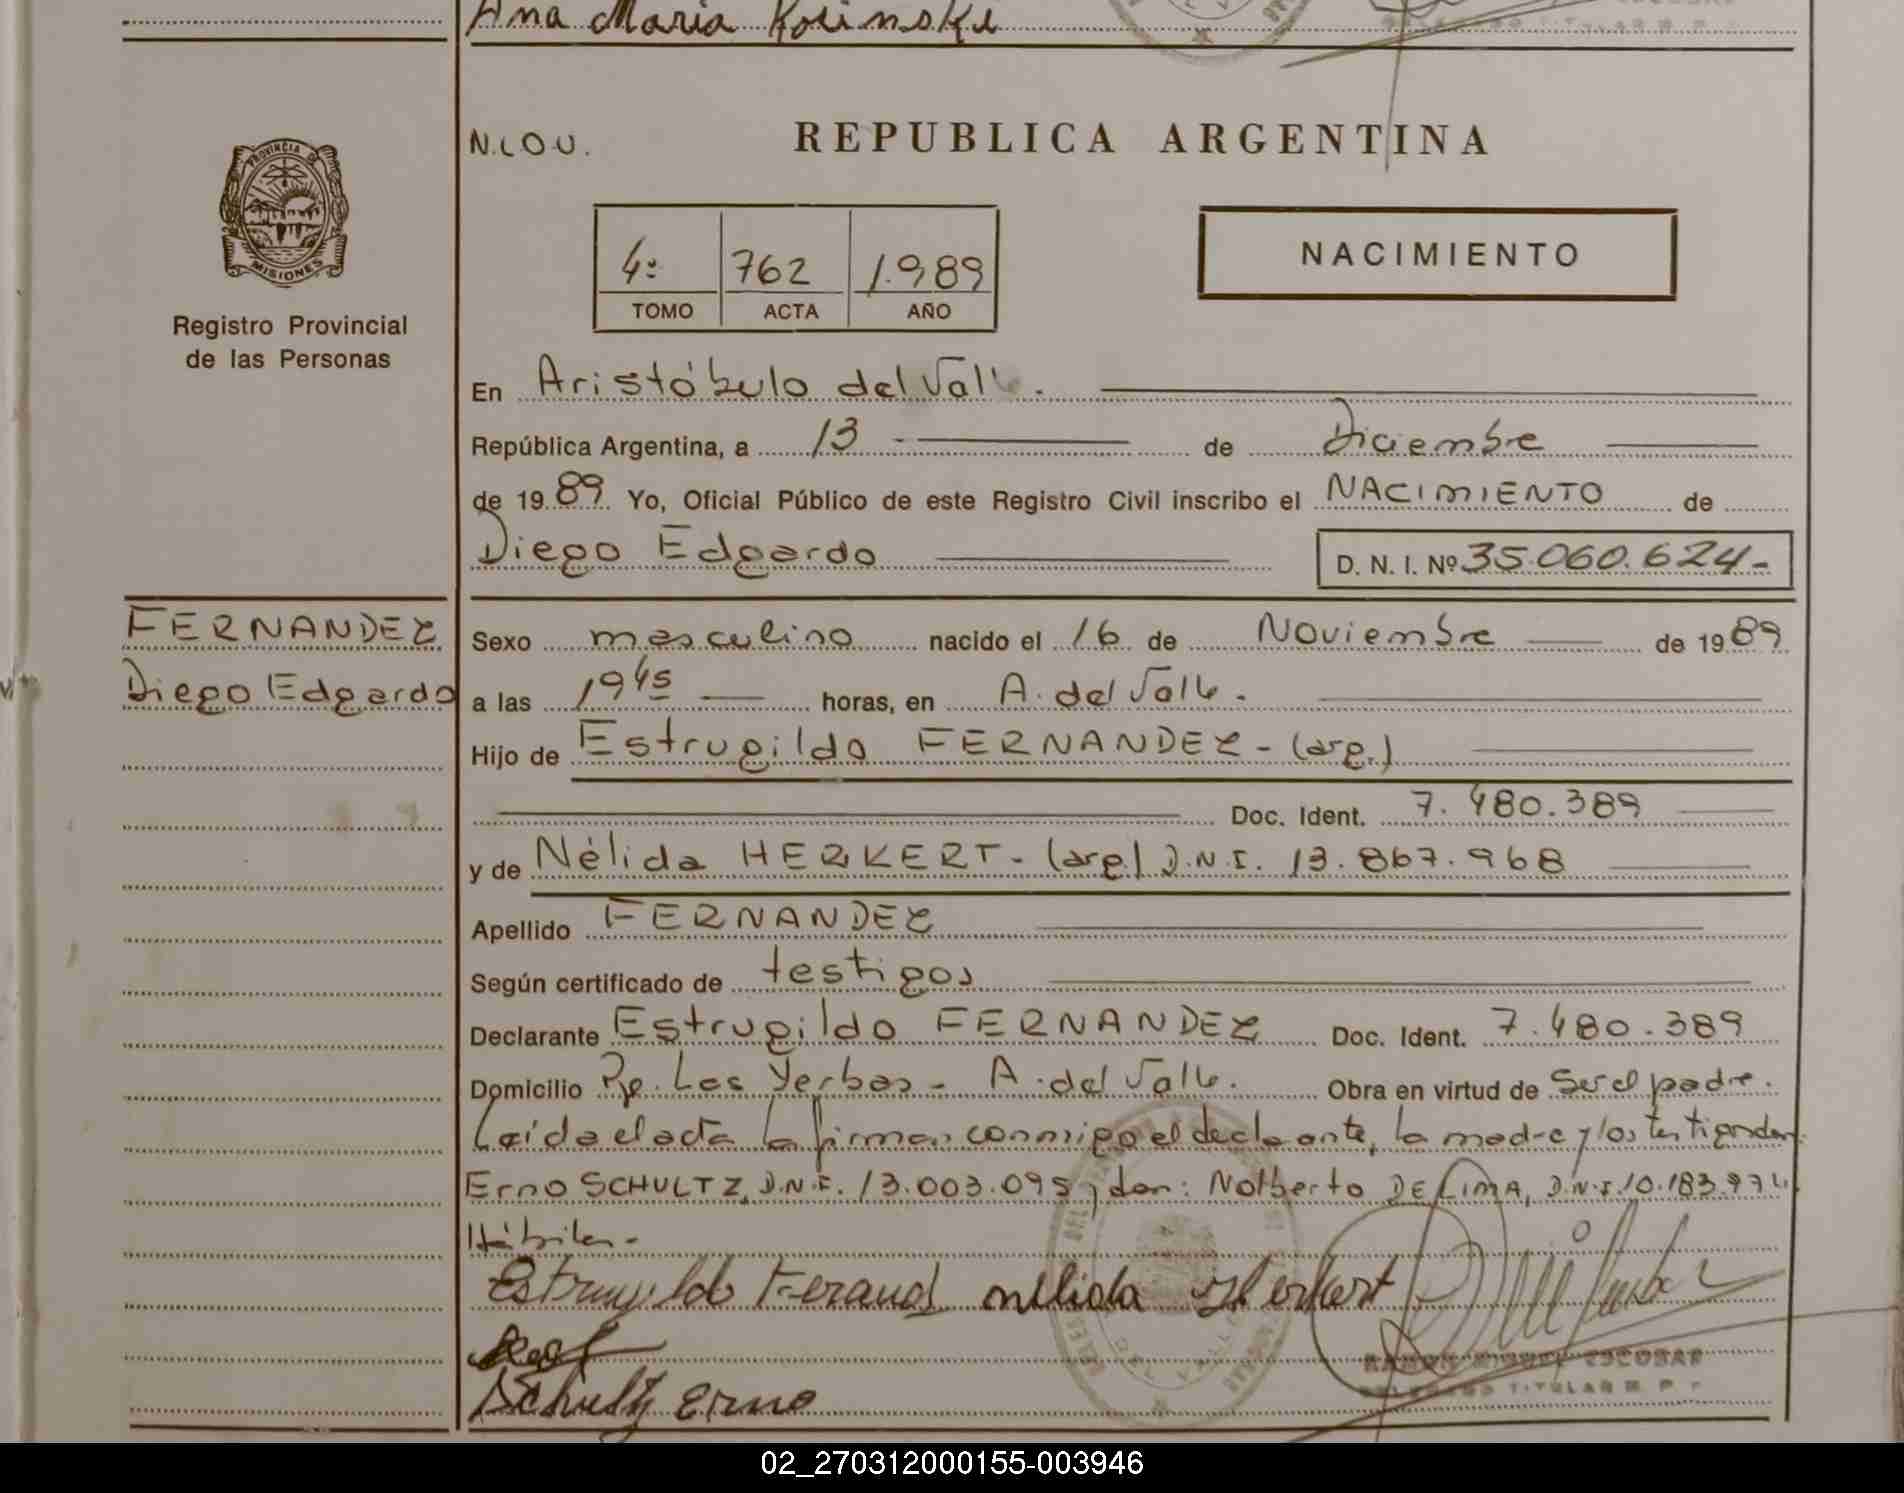 Ana Maria Kolinski
N.L.O.U.
REPUBLICA ARGENTINA
PROVINCIA DE
MISIONES
Registro Provincial
de las Personas
4º 762 1.989
TOMO ACTA AÑO
NACIMIENTO
En Aristóbulo del Valle.
República Argentina, a 13 de Diciembre
de 1989. Yo, Oficial Público de este Registro Civil inscribo el NACIMIENTO de
Diego Edgardo
D. N. I. Nº 35.060.624-
FERNANDEZ
Diego Edgardo
Sexo masculino nacido el 16 de Noviembre de 1989
a las 19 45 horas, en A. del Valle.
Hijo de Estrugildo FERNANDEZ - (arg.)
Doc. Ident. 7.480.389
y de Nélida HERKERT - (arg.) D.N.I. 13.867.968
Apellido FERNANDEZ
Según certificado de testigos
Declarante Estrugildo FERNANDEZ Doc. Ident. 7.480.389
Domicilio Pje. Las Yerbas - A. del Valle. Obra en virtud de Ser el padre.
Leída el acta la firman conmigo el declarante, la madre y los testigos don:
Erno SCHULTZ, D.N.I. 13.003.095 y don: Nolberto DE LIMA, D.N.I. 10.183.974
Hábiles.-
Estrugildo Fernand Nelida Herkert
Schultz Erno
RAMON MIGUEL ESCOBAR
DELEGADO TITULAR R. P. P.
02_270312000155-003946